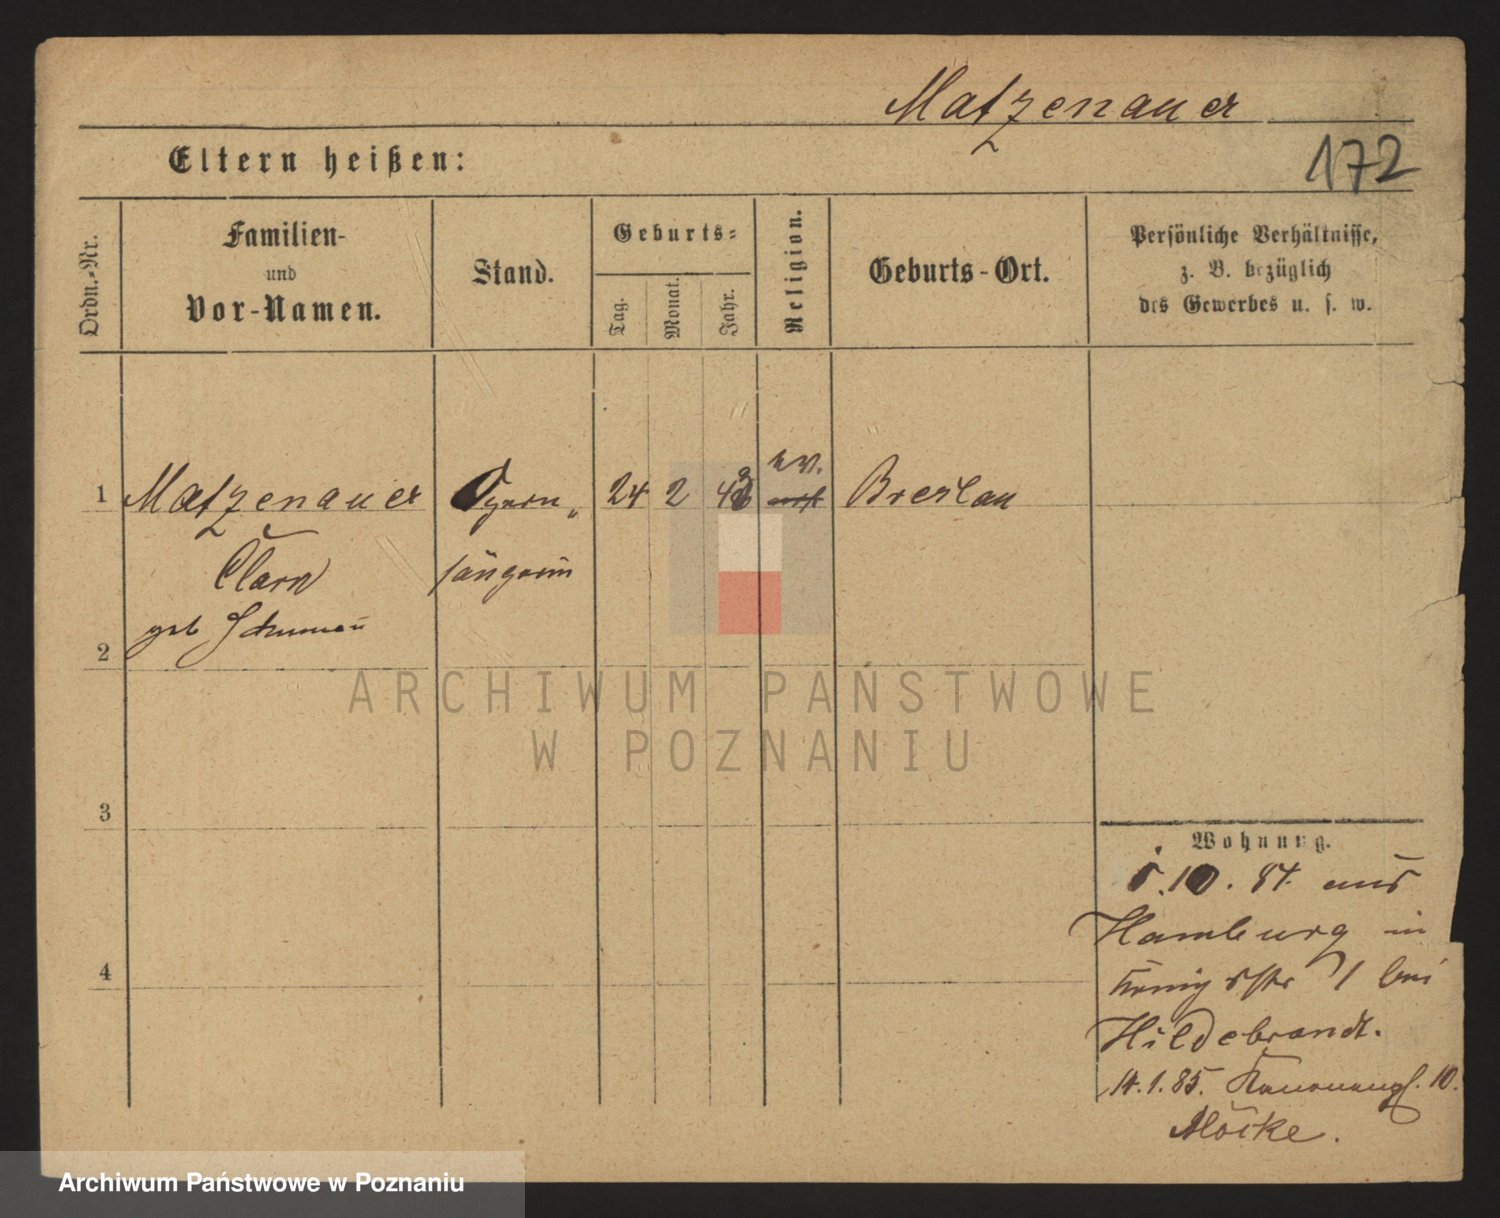 Matzenauer
172
Eltern heißen:
Ordn.-Nr.
Familien-
und
Vor-Namen.
Stand.
Geburts-
Tag.
Monat.
Jahr.
Religion.
Geburts-Ort.
Persönliche Verhältnisse,
z. B. bezüglich
des Gewerbes u. s. w.
1 Matzenauer 24 2 ev. Breslau
Clara sängerin
geb
2
ARCHIWUM PAŃSTWOWE
W POZNANIU
3
Wohnung.
5.10.84. aus
Hamburg in
Königsstr 1 bei
Hildebrandt.
4
14.1.85. 10.
Möcke.
Archiwum Państwowe w Poznaniu